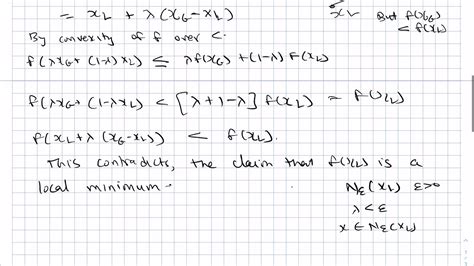 = x_L + λ(x_G - x_L)
x_L But f(x_G) < f(x_L)
By convexity of f over C.
f(λx_G + (1-λ)x_L) ≤ λf(x_G) + (1-λ) F(x_L)
f(λx_G + (1-λx_L) < [λ+1-λ] f(x_L) = f(x_L)
f(x_L + λ(x_G-x_L)) < f(x_L).
This contradicts, the claim that f(x_L) is a
local minimum
N_ε(x_L) ε>0
λ < ε
x ∈ N_ε(x_L)